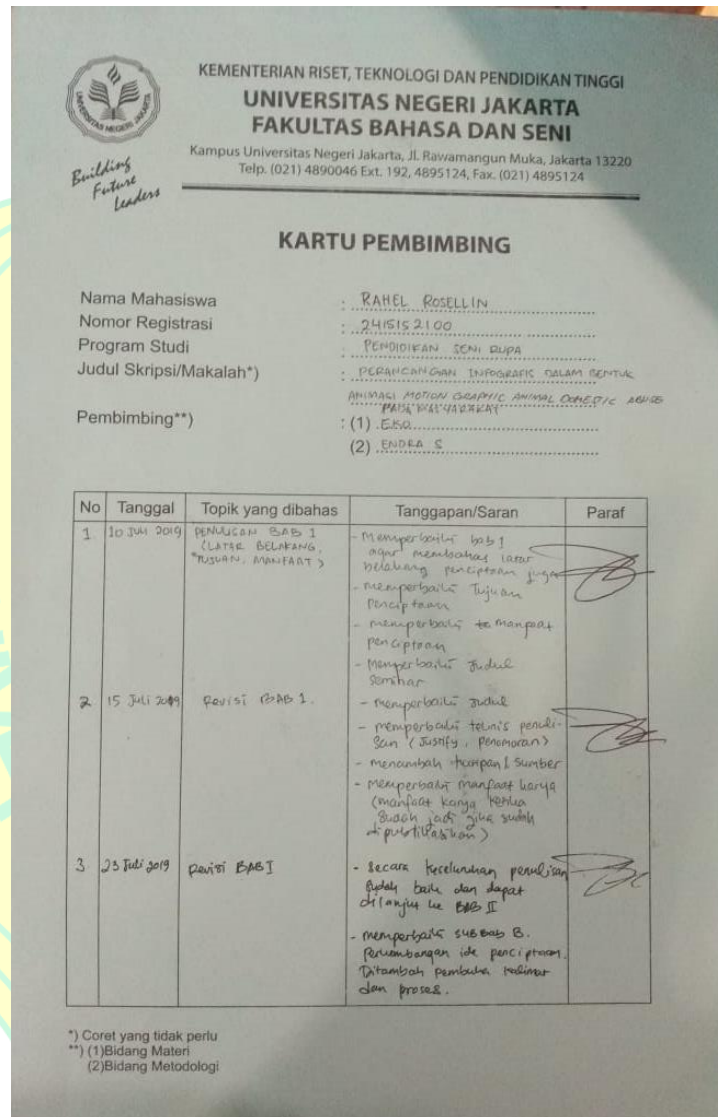 KEMENTERIAN RISET, TEKNOLOGI DAN PENDIDIKAN TINGGI
UNIVERSITAS NEGERI JAKARTA
FAKULTAS BAHASA DAN SENI
Kampus Universitas Negeri Jakarta, Jl. Rawamangun Muka, Jakarta 13220
Telp. (021) 4890046 Ext. 192, 4895124, Fax. (021) 4895124
UNIVERSITAS NEGERI JAKARTA
Building
Future
Leaders
KARTU PEMBIMBING
Nama Mahasiswa : RAHEL ROSELLIN
Nomor Registrasi : 2415152100
Program Studi : PENDIDIKAN SENI RUPA
Judul Skripsi/Makalah*) : PERANCANGAN INFOGRAFIS DALAM BENTUK
ANIMASI MOTION GRAPHIC ANIMAL DOMESTIC ABUSE
PADA MASYARAKAT
Pembimbing**) : (1) EKO
(2) ENDRA S
No Tanggal Topik yang dibahas Tanggapan/Saran Paraf
1 10 Juli 2019 PENULISAN BAB 1
(LATAR BELAKANG,
TUJUAN, MANFAAT)
- Memperbaiki bab 1
agar membahas latar
belakang penciptaan juga
- memperbaiki Tujuan
Penciptaan
- memperbaiki manfaat
penciptaan
- Memperbaiki Judul
Seminar
2 15 Juli 2019 Revisi BAB 1.
- memperbaiki Judul
- memperbaiki teknis penuli-
san (Justify, Penomoran)
- menambah kutipan / sumber
- Memperbaiki manfaat karya
(manfaat karya ketika
sudah jadi jika sudah
dipublikasikan)
3 23 Juli 2019 Revisi BAB I
- Secara keseluruhan penulisan
sudah baik dan dapat
dilanjut ke BAB II
- memperbaiki SUB Bab B.
Perkembangan ide penciptaan.
Ditambah pembuka kalimat
dan proses.
*) Coret yang tidak perlu
**) (1)Bidang Materi
(2)Bidang Metodologi